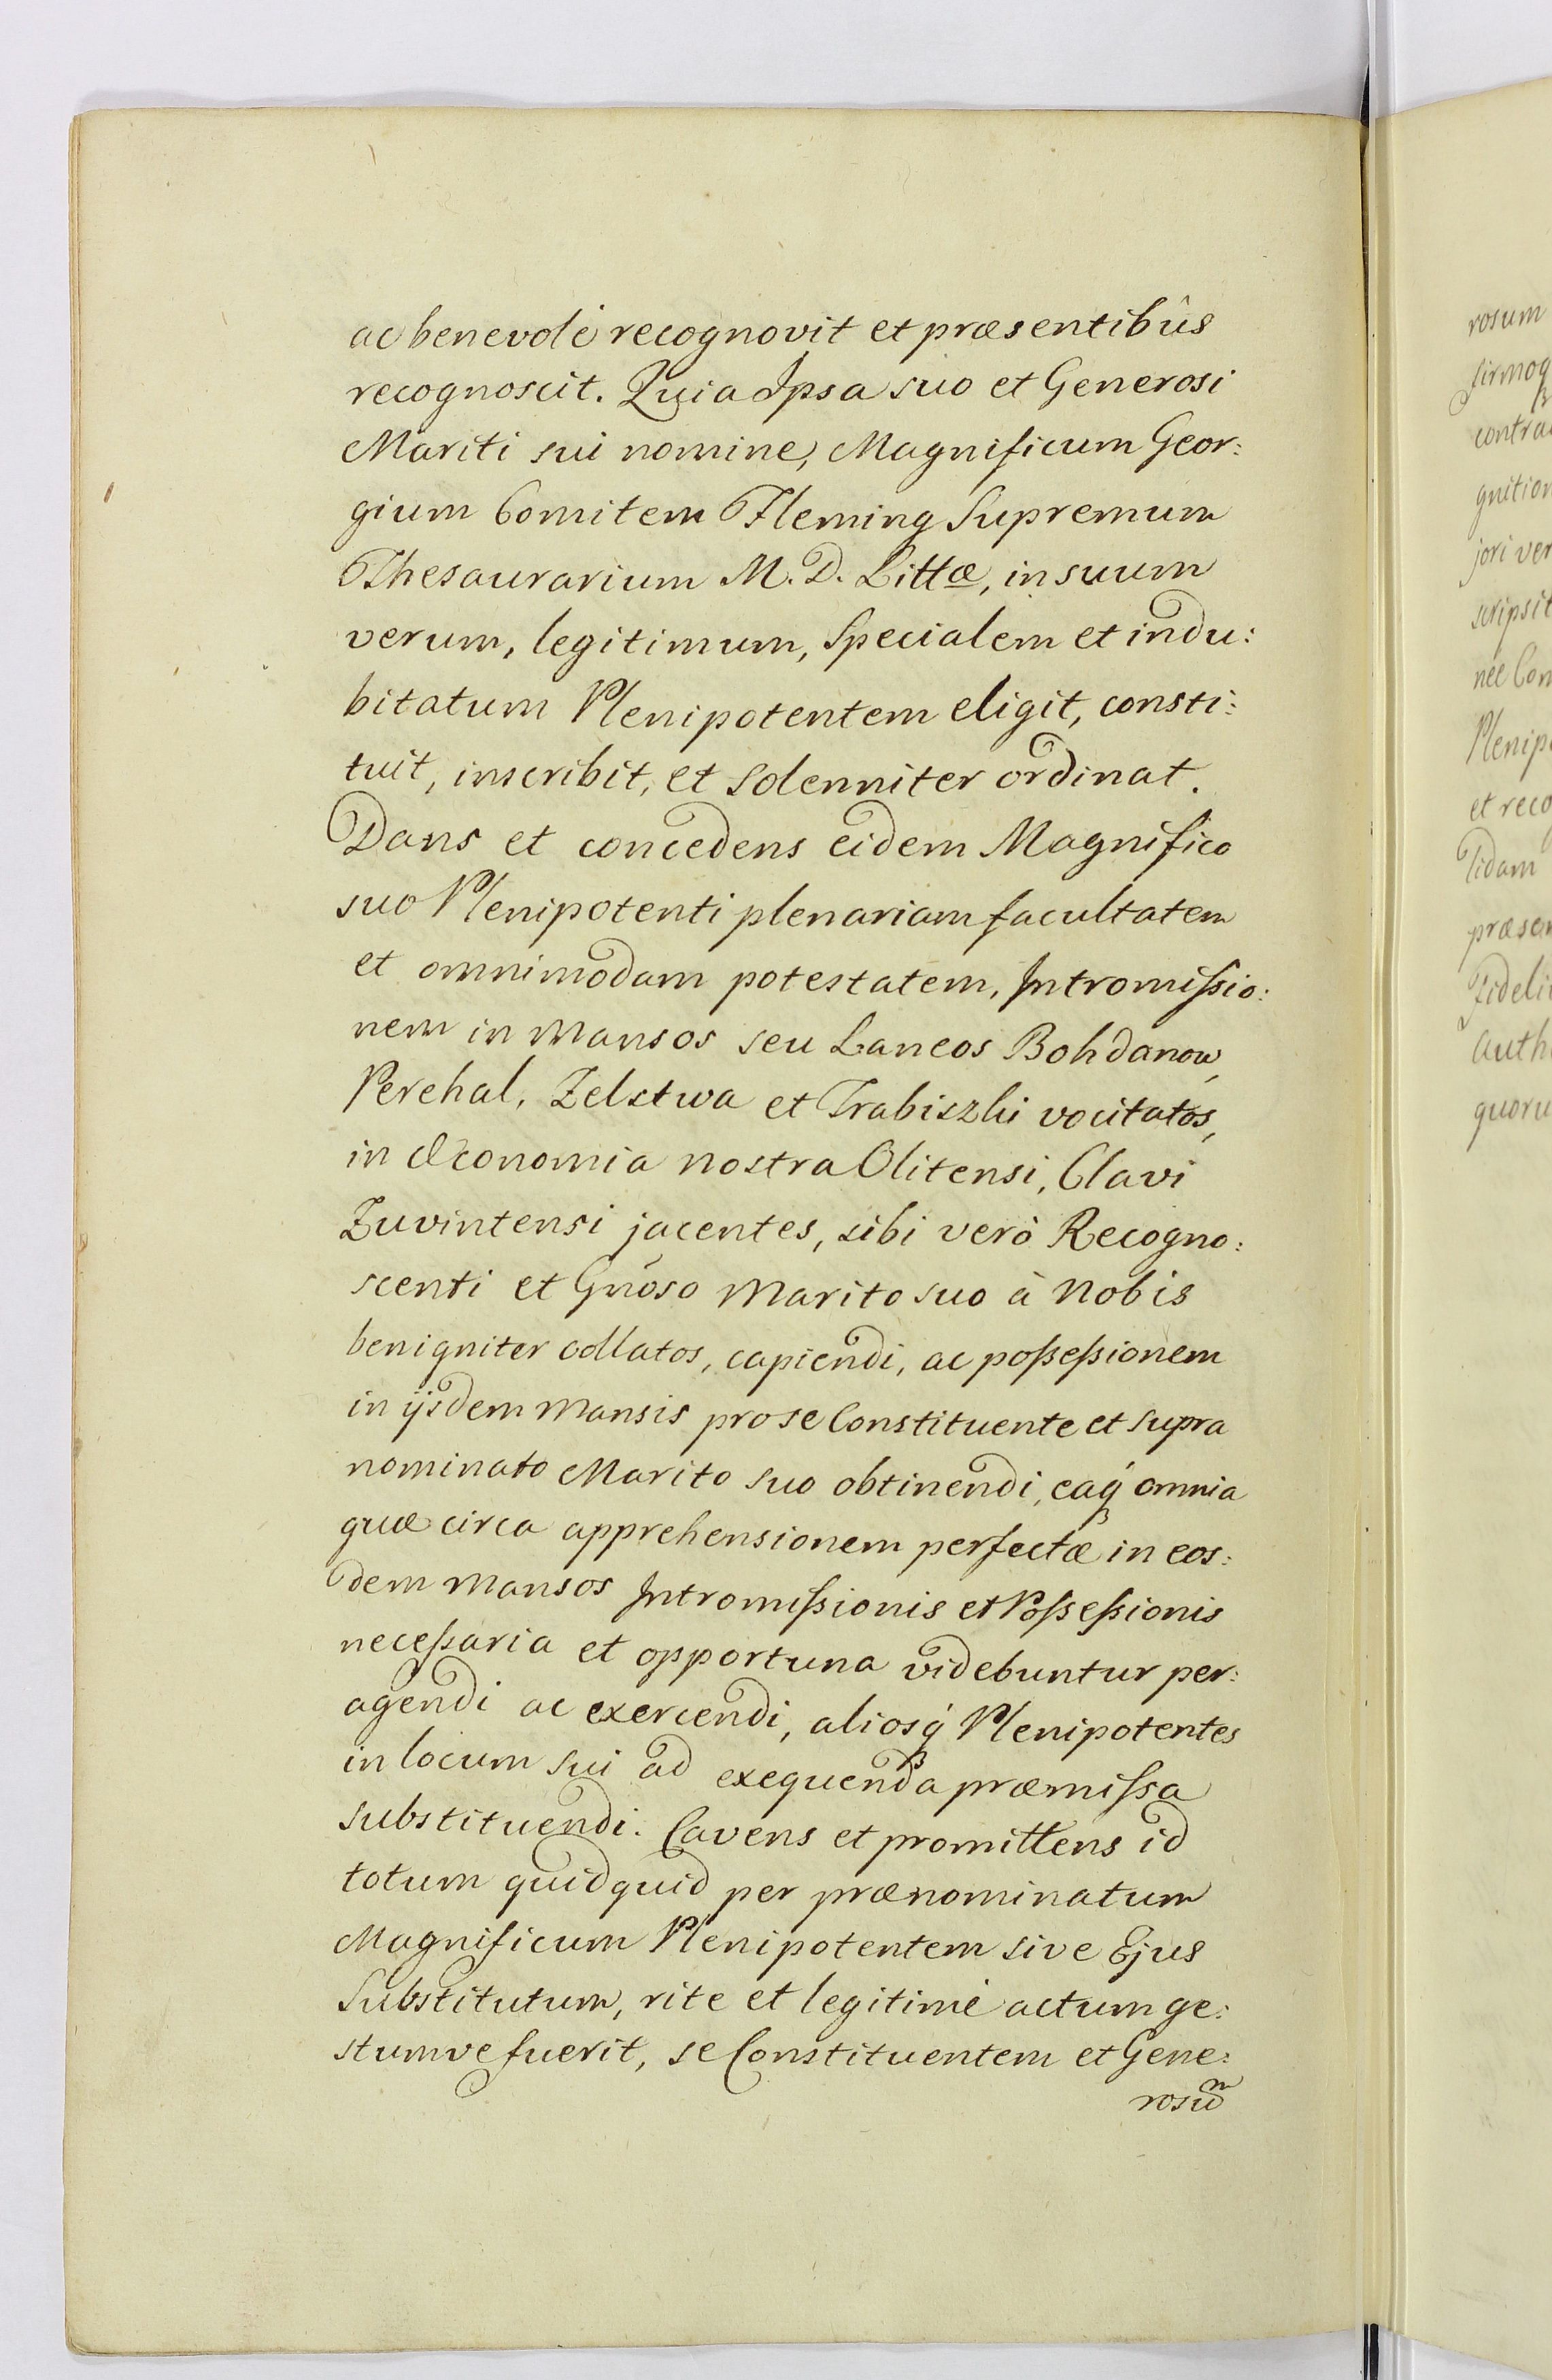 ac benevolè recognovit et præsentibûs
recognoscit. Quia Ipsa suo et Generosi
Mariti sui nomine, Magnificum Geor:
gium Comitem Fleming Supremum
Thesaurarium M. D. Littæ, in suum
verum, legitimum, Specialem et indu:
bitatum Plenipotentem eligit, consti:
tuit, inscribit, et solenniter ordinat.
Dans et concedens eidem Magnifico
suo Plenipotenti plenariam facultatem
et omnimodam potestatem, Intromißio:
nem in Mansos seu Laneos Bohdanow,
Perehal, Zelstwa et Trabiszki vocitatos,
in Œconomia nostra Olitensi, Clavi
Zuvintensi jacentes, sibi verò Recogno:
scenti et Gnoso Marito suo à Nobis
benigniter collatos, capiendi, ac poßeßionem
in ijsdem Mansis pro se Constituente et supra
nominato Marito suo obtinendi, eaq́ omnia
quæ circa apprehensionem perfectæ in eos:
dem Mansos Intromißionis et Poßeßionis
neceßaria et opportuna videbuntur per:
agendi ac exercendi, aliosq́ Plenipotentes
in locum sui ad exequenda præmißa
substituendi. Cavens et promittens id
totum quidquid per prænominatum
Magnificum Plenipotentem sive Ejus
Substitutum, rite et legitimè actum ge:
stumve fuerit, se Constituentem et Gene:
rosum
rosum
contra
gnition
jori ver
scripsit
nec Con
Plenip
et reco
lidam
præsen
Fideli
Auth
quoru